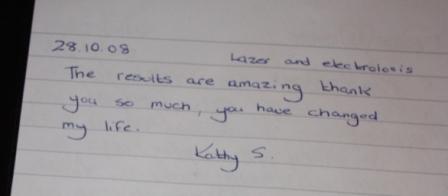 28.10.08 Lazer and electrolosis
The results are amazing thank
you so much, you have changed
my life.
Kathy S.